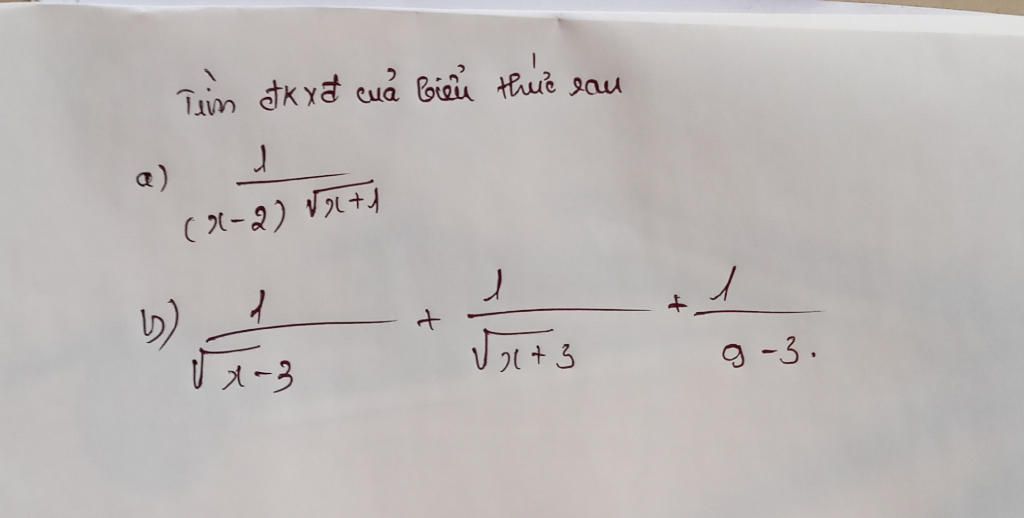 Tìm đkxđ của biểu thức sau
a) \frac{1}{(x-2)\sqrt{x+1}}
b) \frac{1}{\sqrt{x}-3} + \frac{1}{\sqrt{x}+3} + \frac{1}{9-3}.